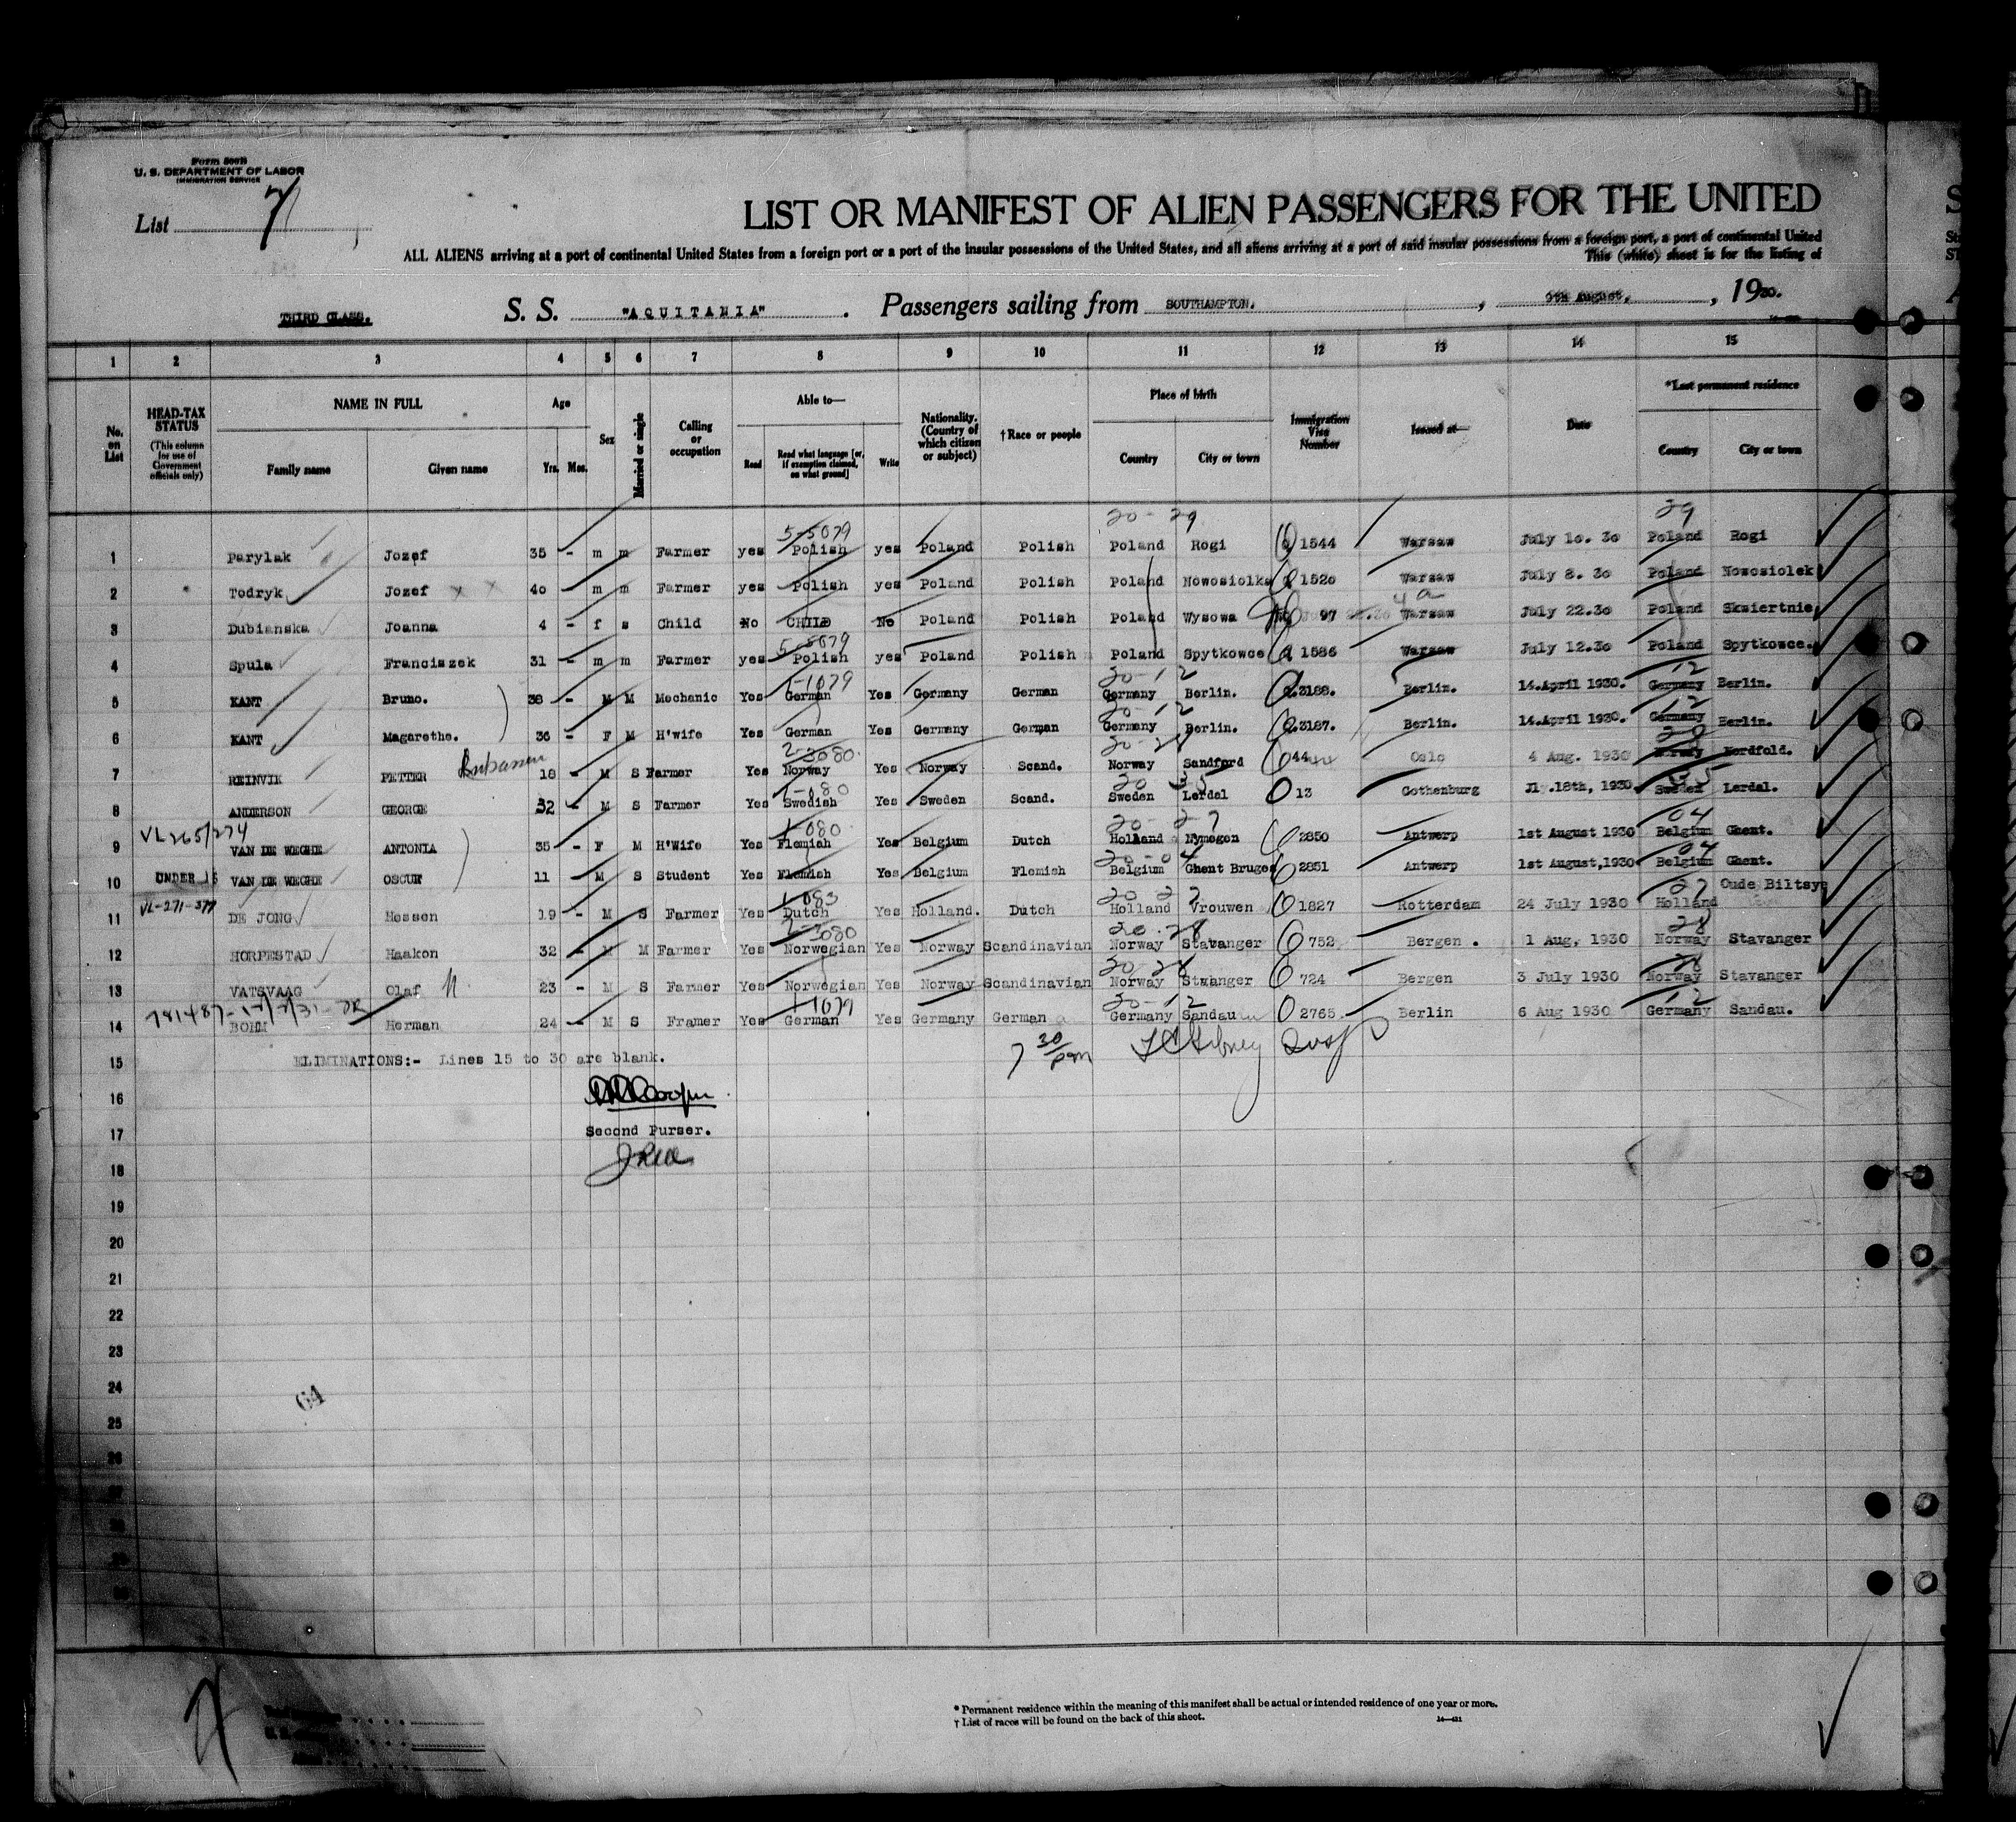 Form 500B
U. S. DEPARTMENT OF LABOR
IMMIGRATION SERVICE
List 7
LIST OR MANIFEST OF ALIEN PASSENGERS FOR THE UNITED
ALL ALIENS arriving at a port of continental United States from a foreign port or a port of the insular possessions of the United States, and all aliens arriving at a port of said insular possessions from a foreign port, a port of continental United
This (white) sheet is for the listing of
THIRD CLASS. S. S. "AQUITANIA". Passengers sailing from SOUTHAMPTON. , 9th August, , 1930.
1 2 3 4 5 6 7 8 9 10 11 12 13 14 15
No. on List
HEAD-TAX STATUS (This column for use of Government officials only)
NAME IN FULL Family name Given name
Age Yrs. Mos.
Sex
Married or single
Calling or occupation
Able to— Read Read what language [or, if exemption claimed, on what ground] Write
Nationality. (Country of which citizen or subject)
†Race or people
Place of birth Country City or town
Immigration Visa Number
Issued at—
Date
*Last permanent residence Country City or town
20- 29 29
5-5079
1 Parylak Jozef 35 - m m Farmer yes Polish yes Poland Polish Poland Rogi 1544 Warsaw July 10. 30 Poland Rogi
2 Todryk Jozef x x 40 m m Farmer yes Polish yes Poland Polish Poland Nowosiolka 1520 Warsaw July 8. 30 Poland Nowosiolek
3 Dubianska Joanna 4 - f s Child No CHILD No Poland Polish Poland Wysowa 97 Warsaw July 22.30 Poland Skwiertnie
5-5079
4 Spula Franciszek 31 - m m Farmer yes Polish yes Poland Polish Poland Spytkowce 1586 Warsaw July 12.30 Poland Spytkowce.
1-1079 20-12 12
5 KANT Bruno. 38 - M M Mechanic Yes German Yes Germany German Germany Berlin. 3188. Berlin. 14.April 1930. Germany Berlin.
20-12 12
6 KANT Magarethe. 36 - F M H'wife Yes German Yes Germany German Germany Berlin. 3187. Berlin. 14.April 1930. Germany Berlin.
2-3080. 20-28 28
7 REINVIK PETTER 18 - M S Farmer Yes Norway Yes Norway Scand. Norway Sandford 44 Oslo 4 Aug. 1930 Norway Nordfold.
1-080 20 35 35
8 ANDERSON GEORGE 32 - M S Farmer Yes Swedish Yes Sweden Scand. Sweden Lerdal 13 Gothenburg Jl .18th, 1930 Sweden Lerdal.
VL 265/274 1-080 20-27 04
9 VAN DE WEGHE ANTONIA 35 - F M H'Wife Yes Flemish Yes Belgium Dutch Holland Nymegen 2850 Antwerp 1st August 1930 Belgium Ghent.
20-04 04
10 UNDER 16 VAN DE WEGHE OSCUR 11 - M S Student Yes Flemish Yes Belgium Flemish Belgium Ghent Bruges 2851 Antwerp 1st August,1930 Belgium Ghent.
VL-271-377 1-083 20 27 27 Oude Biltsyp
11 DE JONG Hessen 19 - M S Farmer Yes Dutch Yes Holland. Dutch Holland Vrouwen 1827 Rotterdam 24 July 1930 Holland
2-3080 20-28 28
12 HORPESTAD Haakon 32 - M M Farmer Yes Norwegian Yes Norway Scandinavian Norway Stavanger 752 Bergen . 1 Aug, 1930 Norway Stavanger
20-28 28
13 VATSVAAG Olaf N. 23 - M S Farmer Yes Norwegian Yes Norway Scandinavian Norway Stavanger 724 Bergen 3 July 1930 Norway Stavanger
1-1079 20-12 12
14 BOHM Herman 24 - M S Framer Yes German Yes Germany German Germany Sandau 2765 Berlin 6 Aug 1930 Germany Sandau.
15 ELIMINATIONS:- Lines 15 to 30 are blank. 7 30/pm
16
17 Second Purser.
18
19
20
21
22
23
24 64
25
26
27
28
29
30
* Permanent residence within the meaning of this manifest shall be actual or intended residence of one year or more.
† List of races will be found on the back of this sheet.